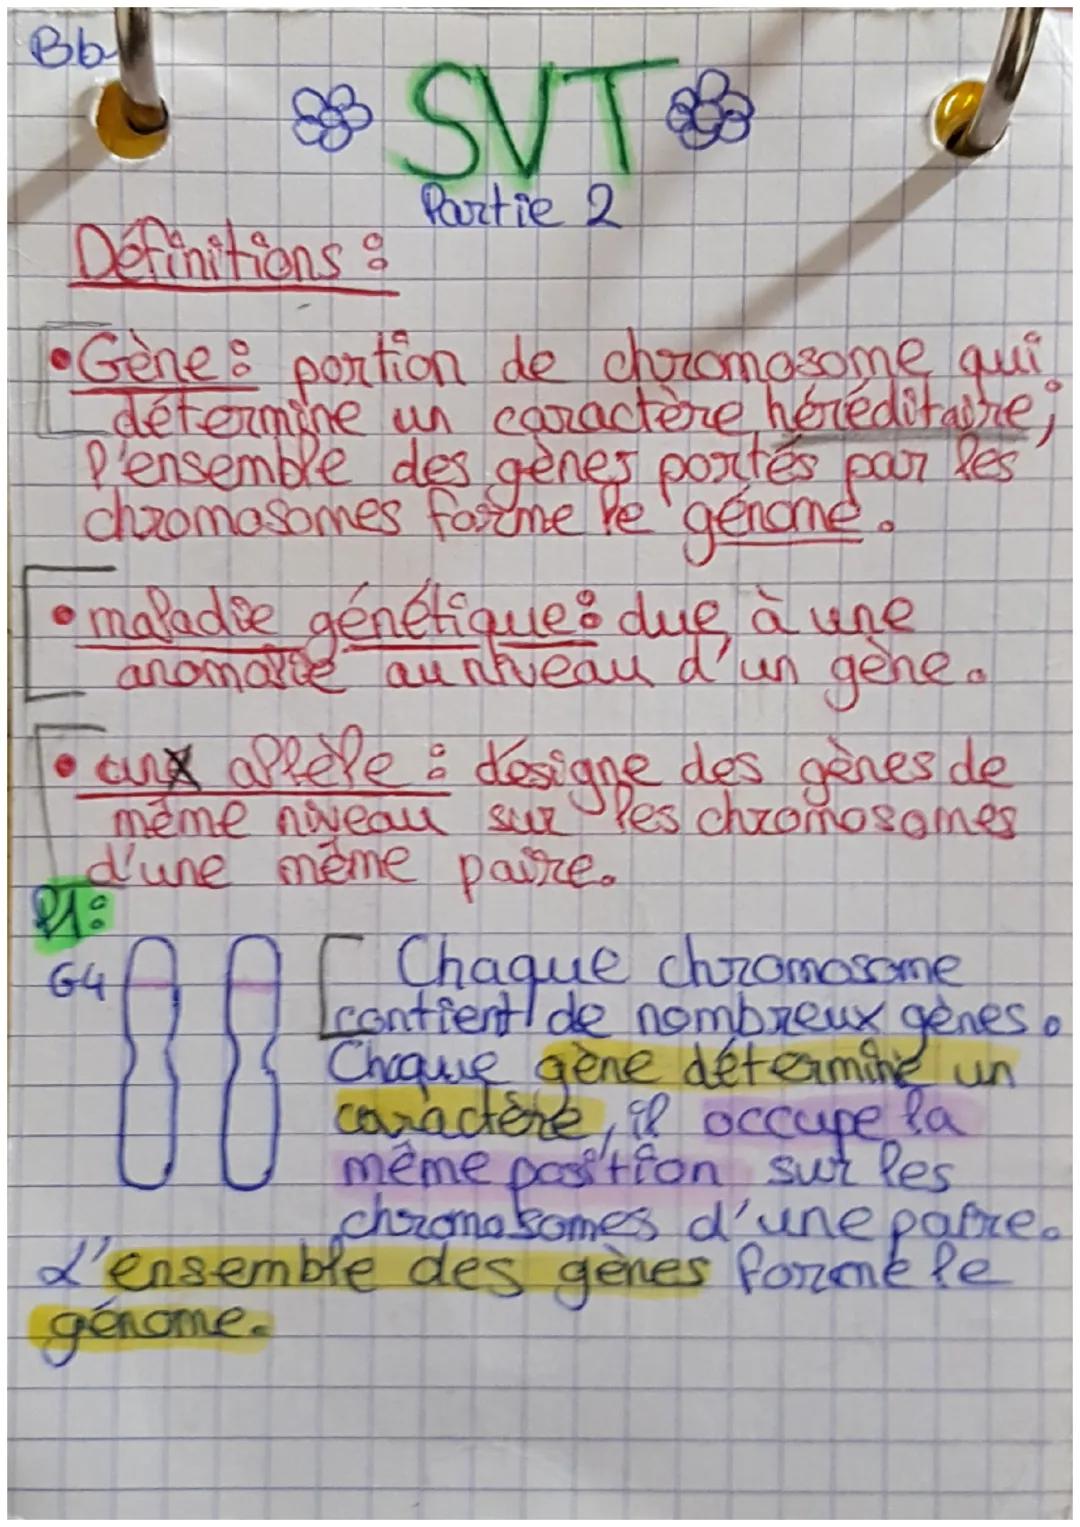 Bb
SVT
Partie 2
Définitions :
• Gène : portion de chromosome qui
détermine un caractère héréditaire ;
l'ensemble des gènes portés par les
chromosomes forme le génome.
• maladie génétique : due à une
anomalie au niveau d'un gène.
• un allèle : désigne des gènes de
même niveau sur les chromosomes
d'une même paire.
P1 :
G4
Chaque chromosome
contient de nombreux gènes.
Chaque gène détermine un
caractère, il occupe la
même position sur les
chromosomes d'une paire.
L'ensemble des gènes forme le
génome.